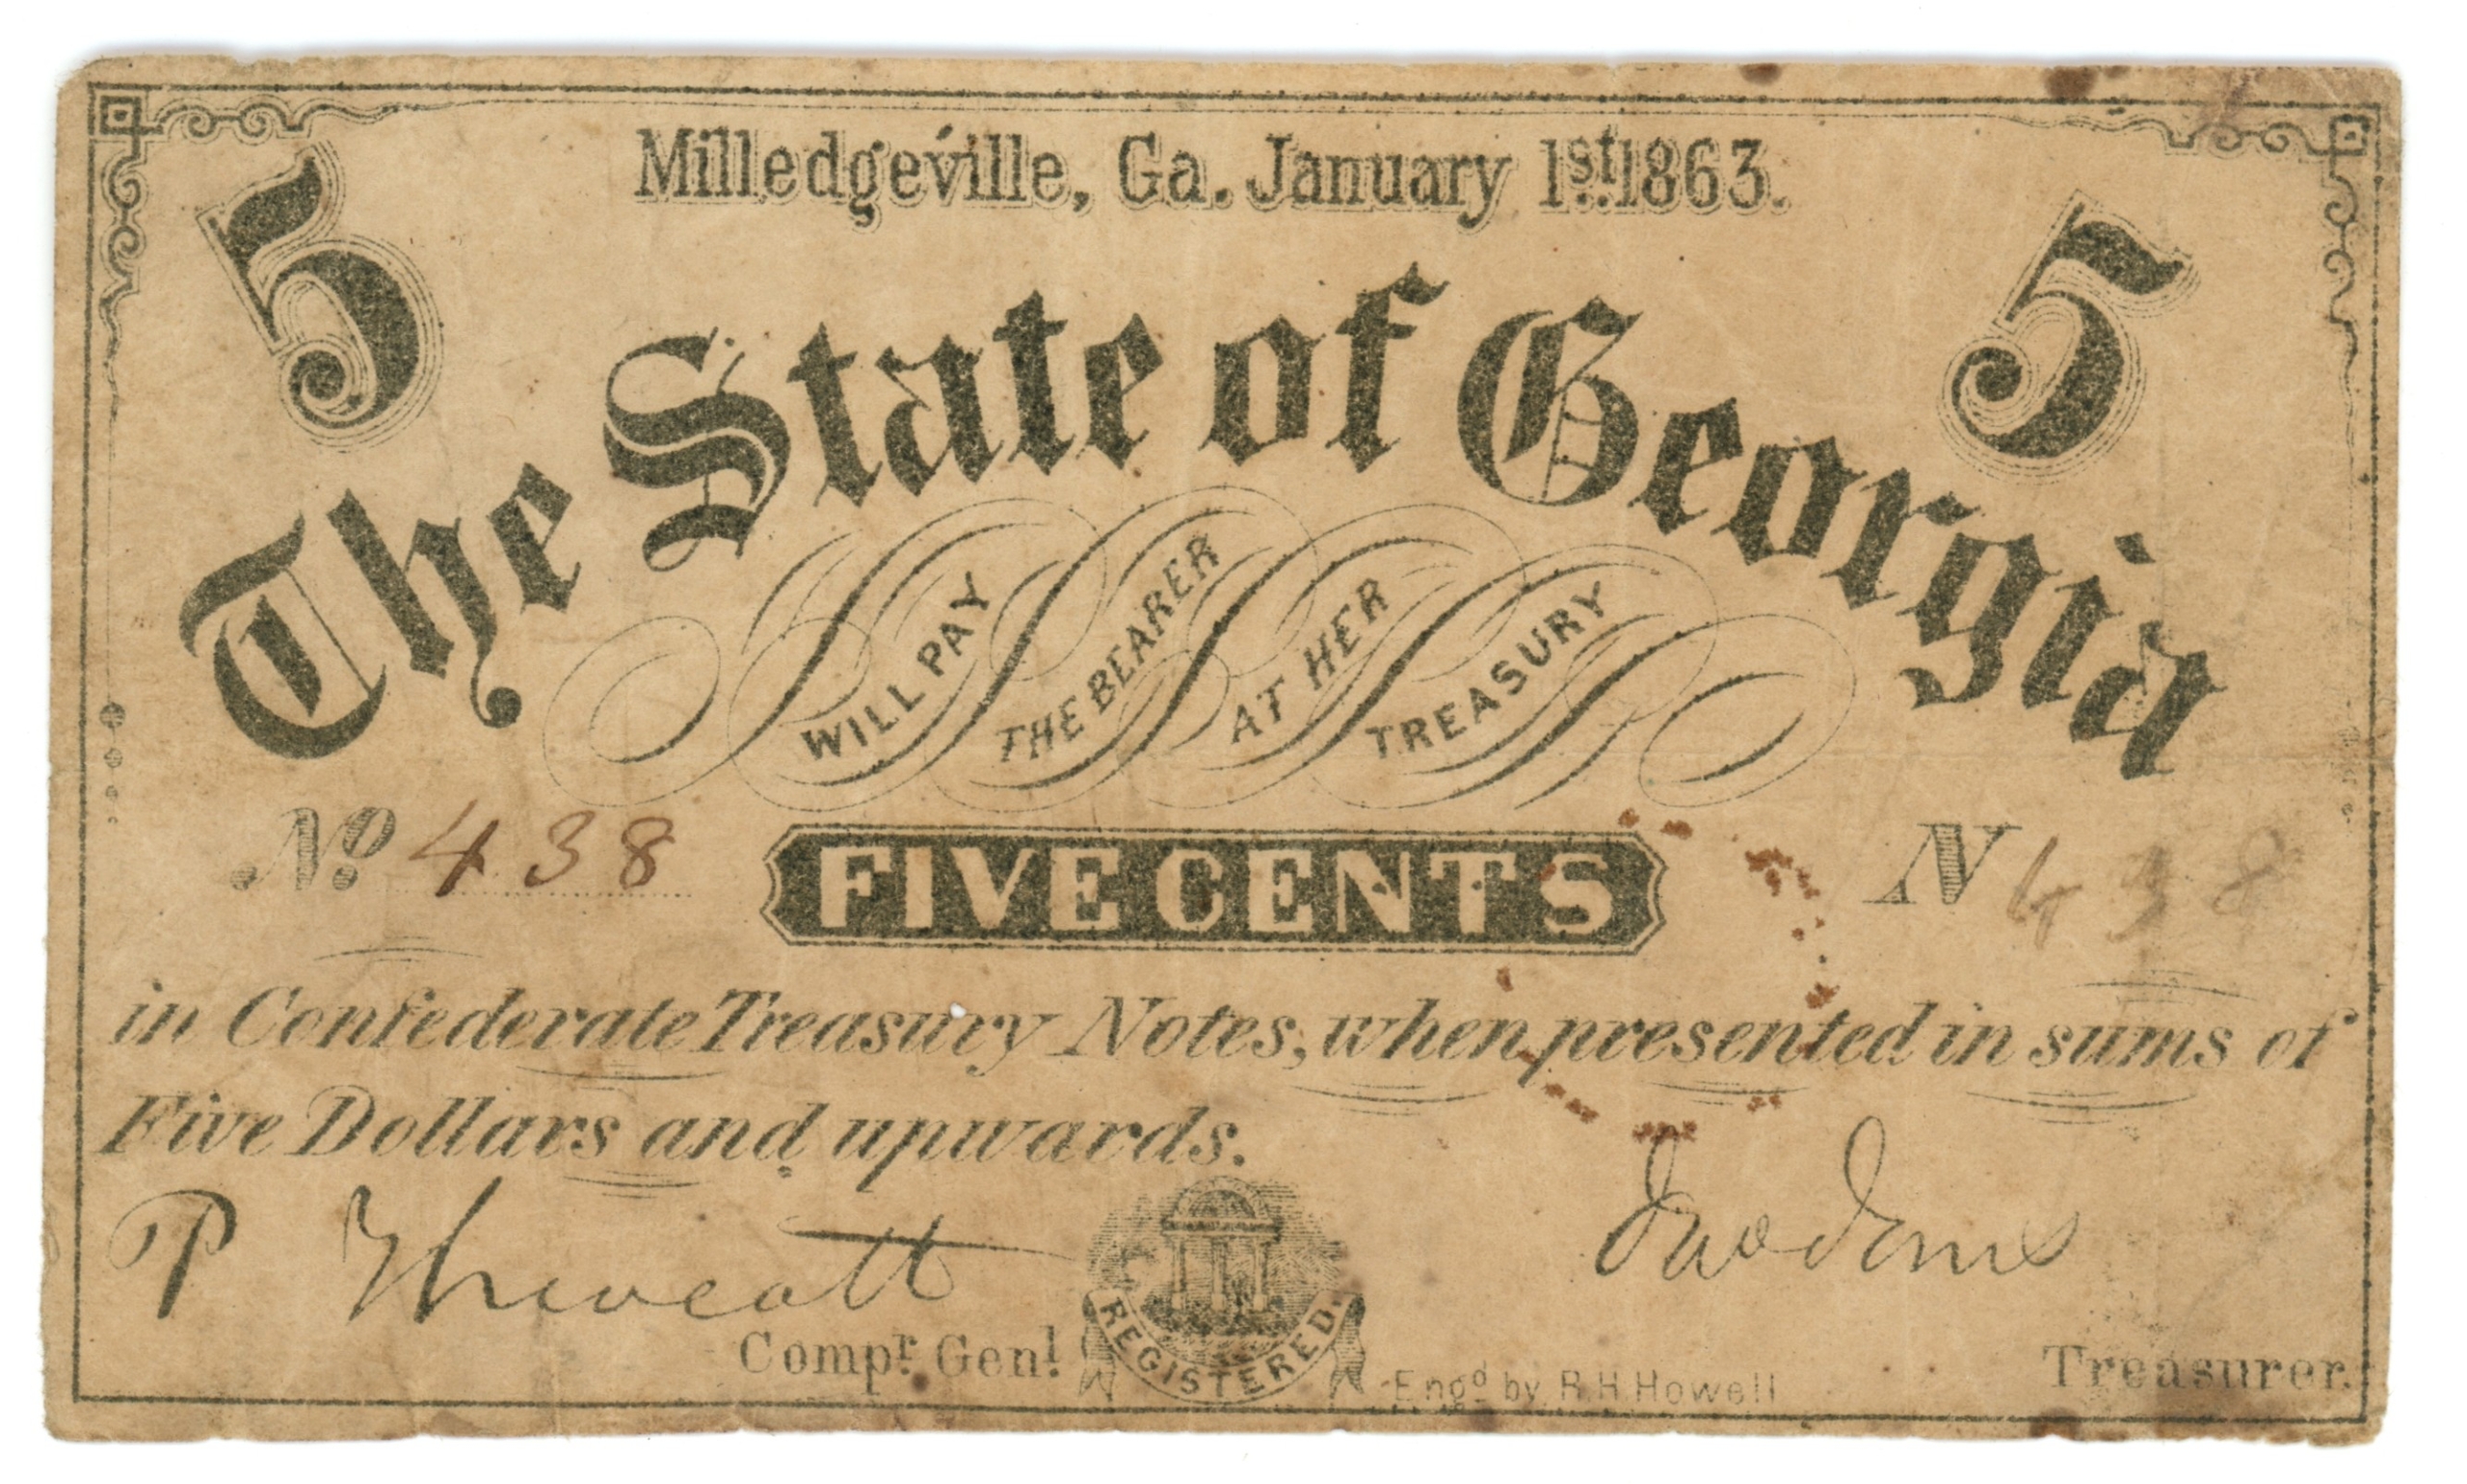 Milledgeville, Ga. January 1st. 1863.
5
5
The State of Georgia
WILL PAY
THE BEARER
AT HER
TREASURY
No. 438
FIVE CENTS
N 438
in Confederate Treasury Notes, when presented in sums of
Five Dollars and upwards.
P Thweatt
Jno Jones
Compr. Genl.
REGISTERED.
Engd by R.H. Howell
Treasurer.